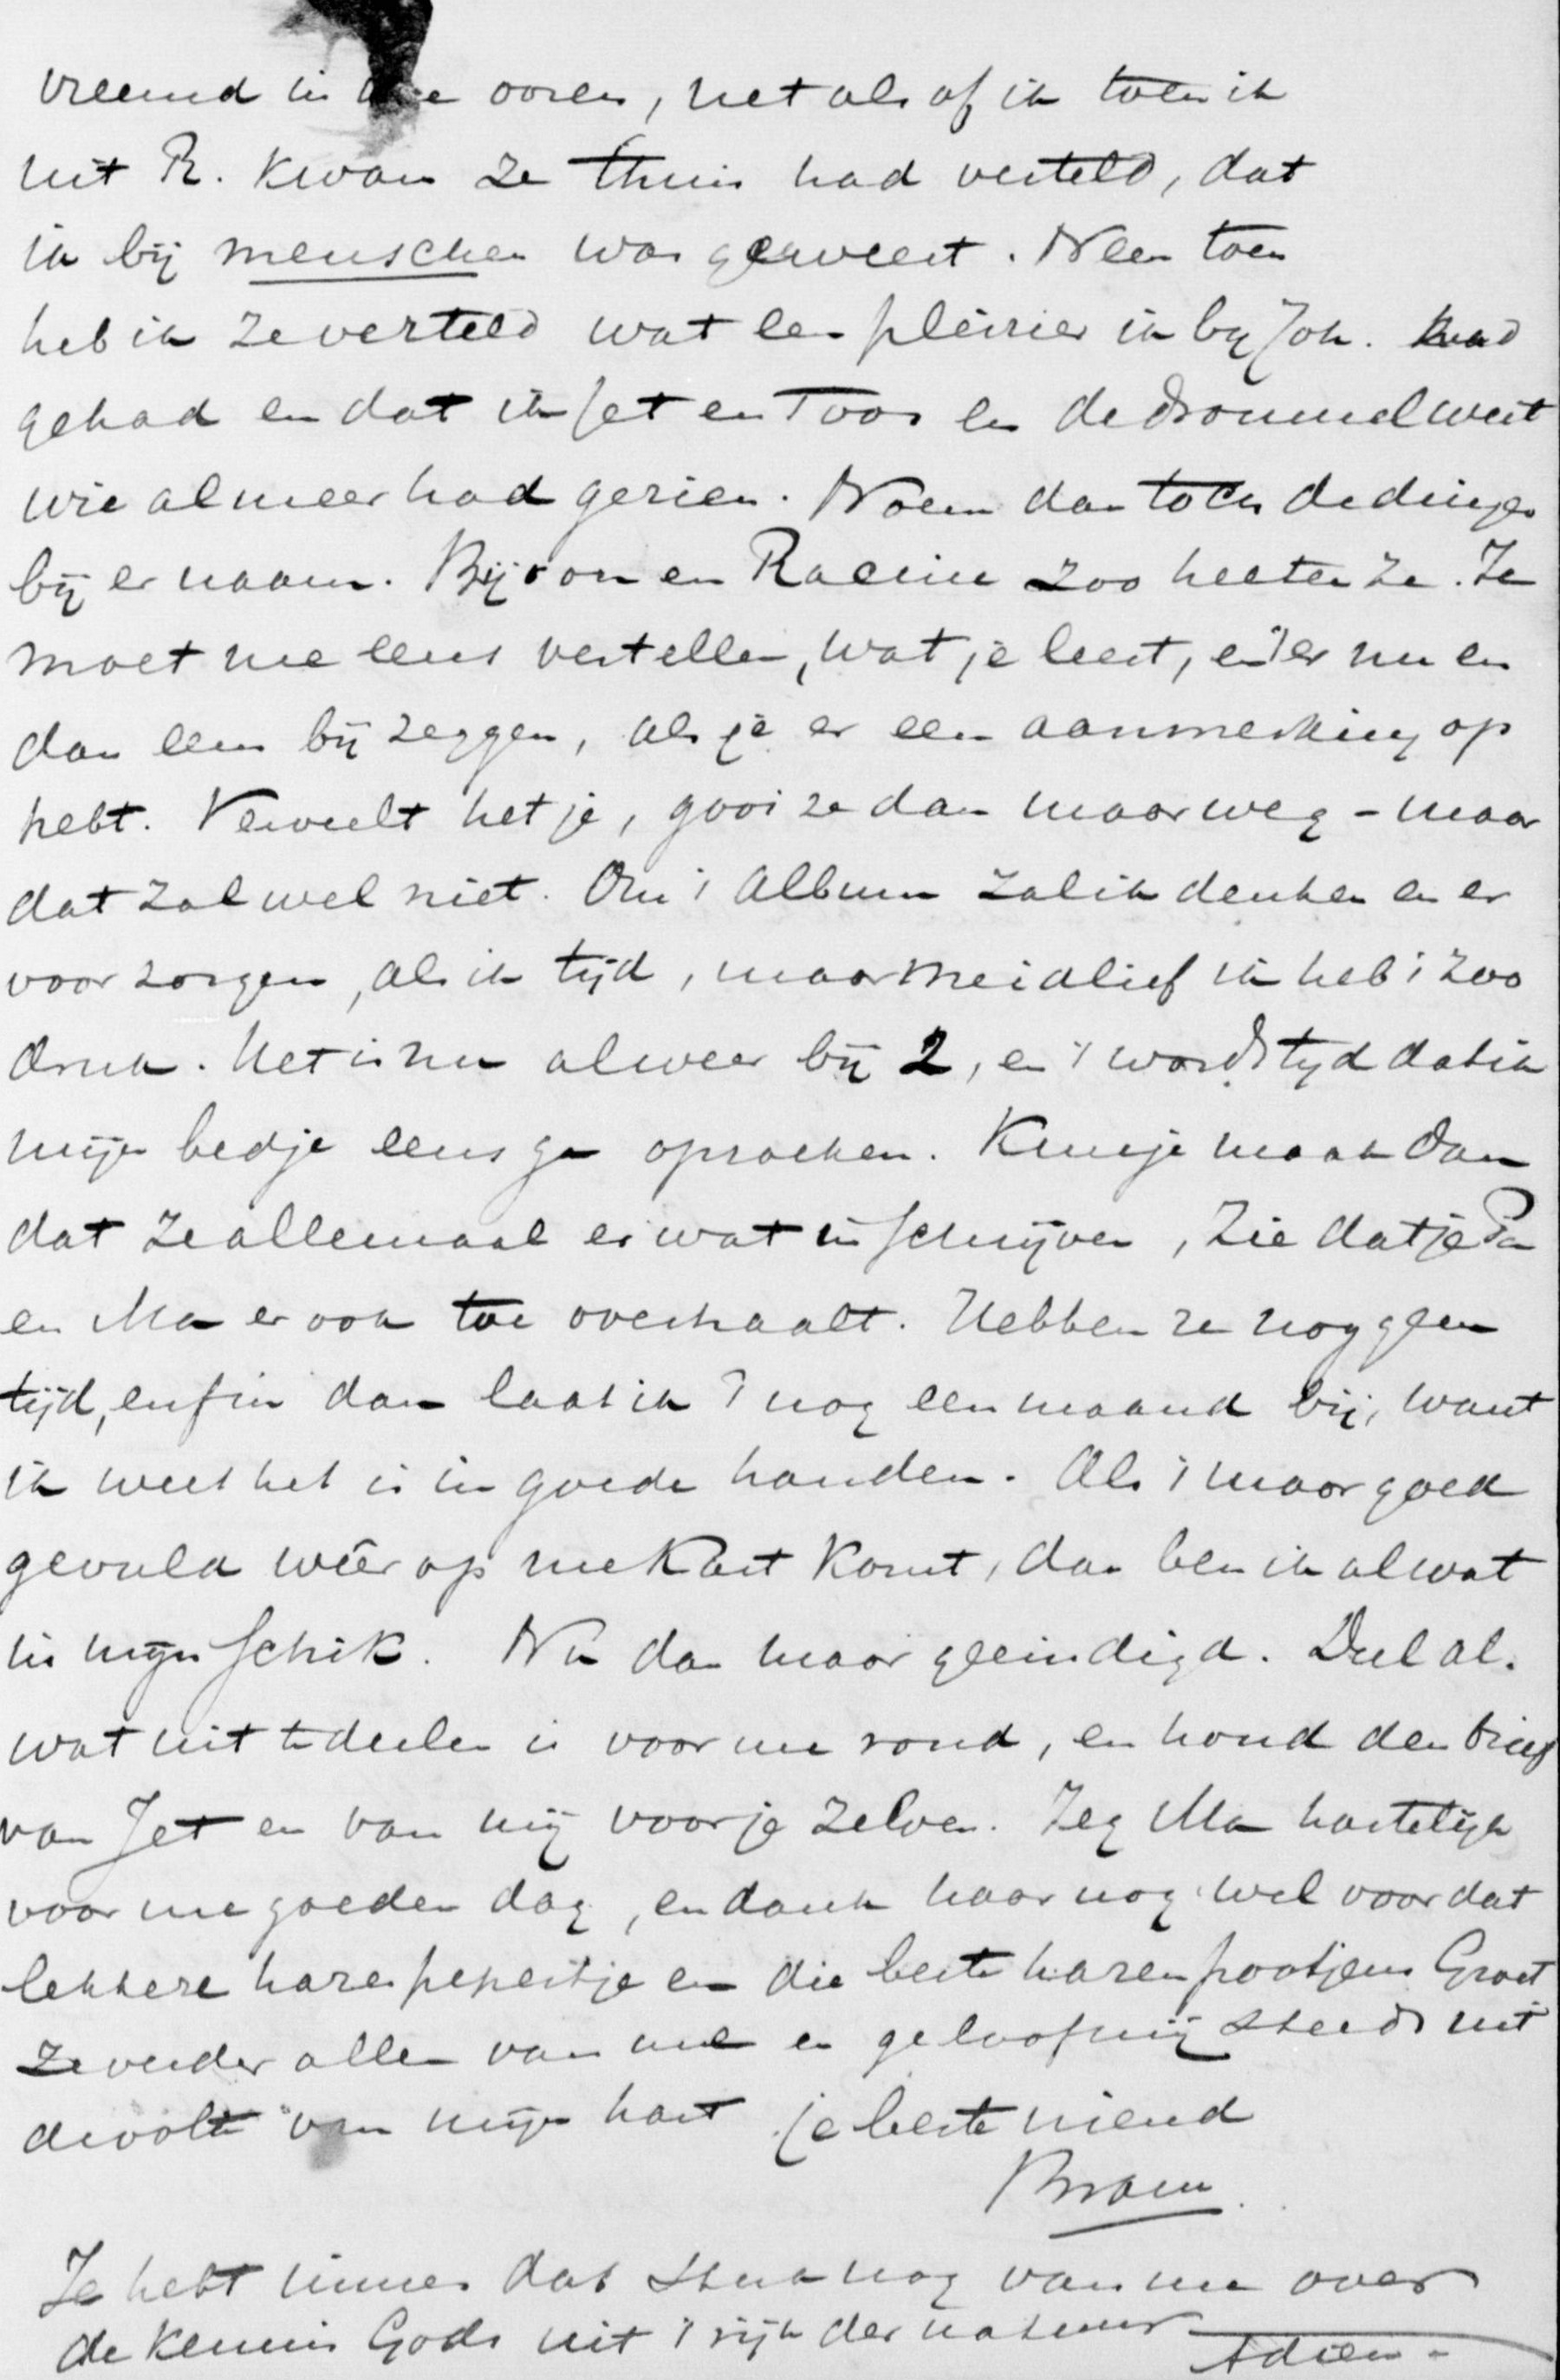 vreemd in ooren, net als of ik toen ik
uit R. kwam ze thuis had verteld, dat
ik bij menschen was geweest. Neen toen
heb ik ze verteld wat een pleizier ik by Joh. had
gehad en dat ik Jet en Toos en de drommel weet
wie al meer had gezien. Noem dan toch de dingen
bij er naam. Bijron en Racine zoo heeten ze. Je
moet me eens vertellen, wat je leest, en er nu en
dan eens bij zeggen, als je er een aanmerking op
hebt. Verveelt het je, gooi ze dan maar weg - maar
dat zal wel niet. Om 't Album zal ik denken en er
voor zorgen, als ik tijd, maar meidlief ik heb 't zoo
druk. Het is nu alweer bij 2, en 't wordt tyd dat ik
mijn bedje eens ga opzoeken. Kun je maak dan
dat ze allemaal er wat in schrijven, zie dat je Pa
en Ma er ook toe overhaalt. Hebben ze nog geen
tijd, enfin dan laat ik 't nog een maand bij, want
ik weet het is in goede handen. Als 't maar goed
gevuld wêer op me Kast komt, dan ben ik al wat
in mijn schik. Nu dan maar geeindigd. Deel al.
wat uit te deelen is voor me rond, en houd den brief
van Jet en van mij voor je zelven. Zeg Ma hartelijk
voor me goeden dag, en dank haar nog wel voor dat
lekkere hazenpeperstje en die beste hazenpootjens Groet
ze verder allen van me en geloof mij steeds uit
de volte van mijn hart je beste vriend
Bram.
Je hebt immers dat stuk nog van me over
de kennis Gods uit 't rijk der natuur
Adieu -